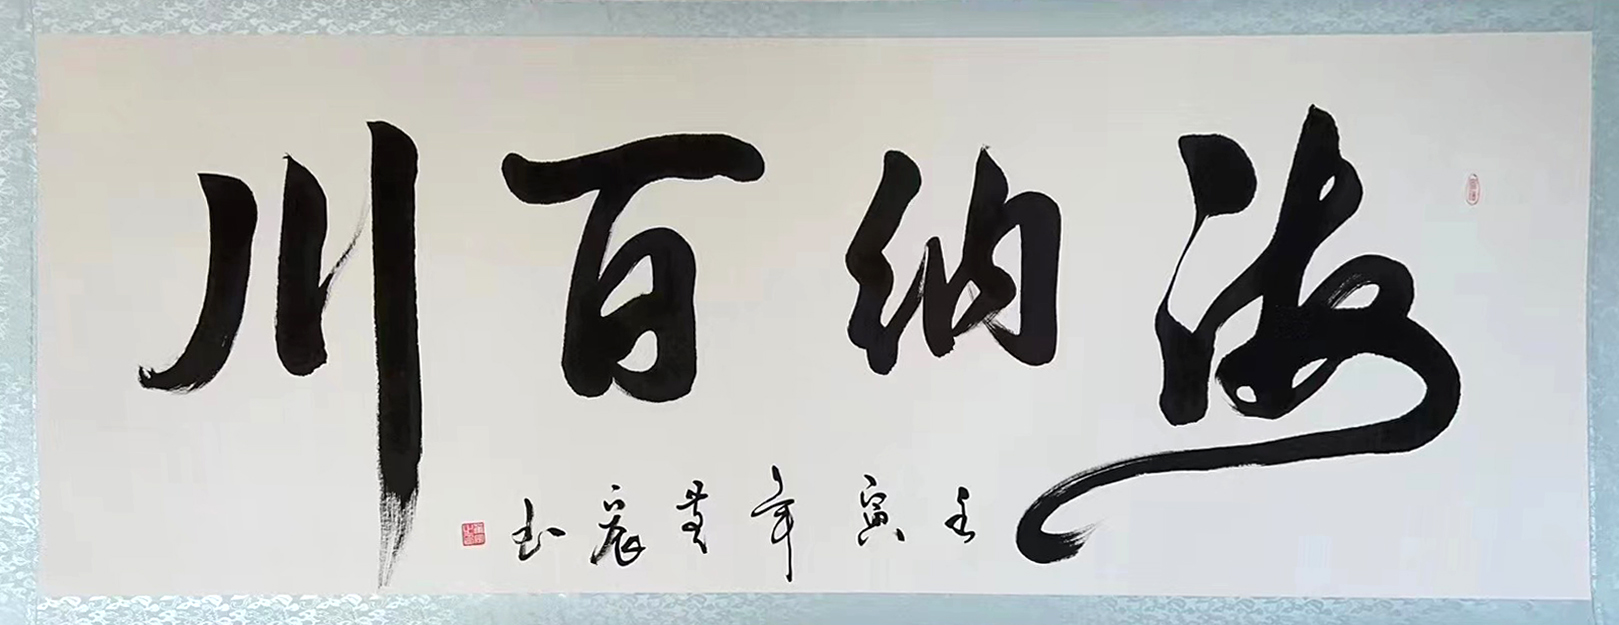 海纳百川
壬寅年黄宸书